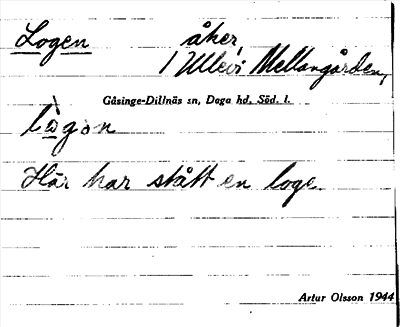 Logen åker,
1 Ullevi Mellangården,
Gåsinge-Dillnäs sn, Daga hd, Söd. l.
lògən
Här har stått en loge
Artur Olsson 1944